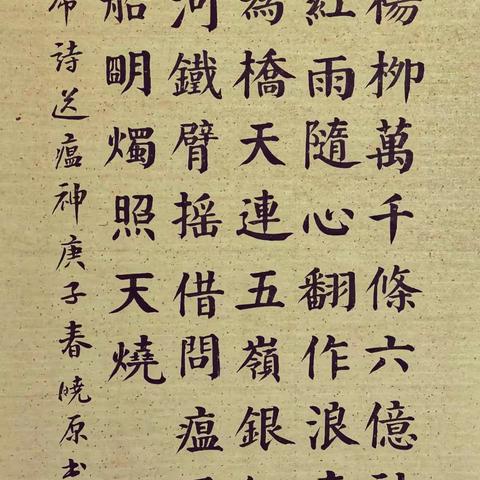 楊柳萬千條六億
紅雨隨心翻作浪
為橋天連五嶺銀
河鐵臂摇借問瘟
船明燭照天燒
席詩送瘟神庚子春曉原书